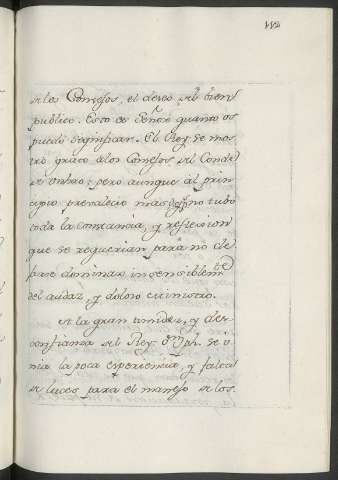 112
de los Consejos, el deseo del bien
publico. Esto es Señor quanto os
puedo significar. El Rey se mos
tró grato a los Consejos del Conde
de Unhao; pero aunque al prin
cipio prevalecio mas no tubo
toda la constancia, y reflexion
que se requerian para no de
jarse dominar insensiblem.te
del audaz, y doloso ministro.
A la gran timidez, y des
confianza del Rey se v
nia la poca experiencia, y falta
de luces para el manejo de los